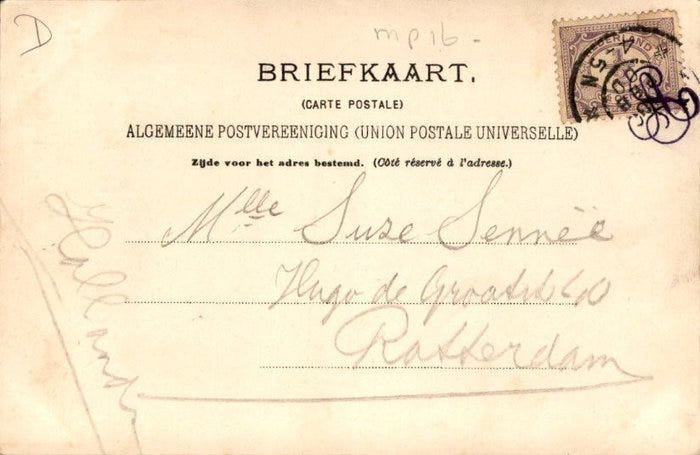 D
mp16-
BRIEFKAART.
(CARTE POSTALE)
ALGEMEENE POSTVEREENIGING (UNION POSTALE UNIVERSELLE)
Zijde voor het adres bestemd. (Côté réservé à l'adresse.)
Mlle Suze Sennée
Hugo de
Rotterdam
Holland